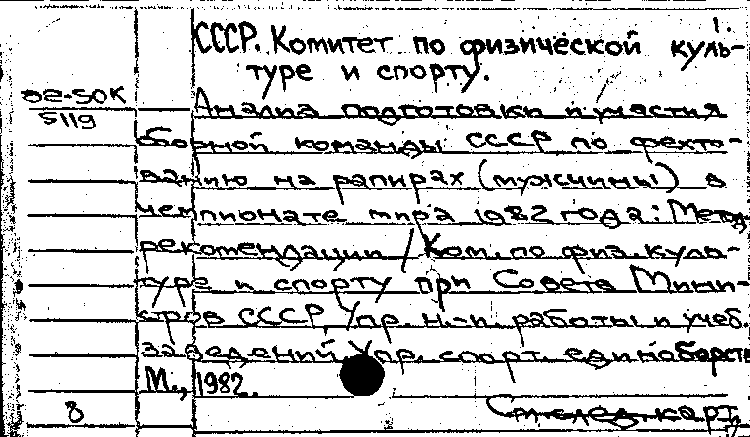 1.
СССР. Комитет по физической куль-
туре и спорту.
82-50К
5119
Анализ подготовки и участия
сборной команды СССР по фехто-
ванию на рапирах (мужчины) в
чемпионате мира 1982 года: Метод.
рекомендации / Ком. по физ. куль-
туре и спорту при Совете Мини-
стров СССР, Упр. н.-и. работы и учеб.
заведений, Упр. спорт. единоборств
М., 1982.
8
См. след. карт.